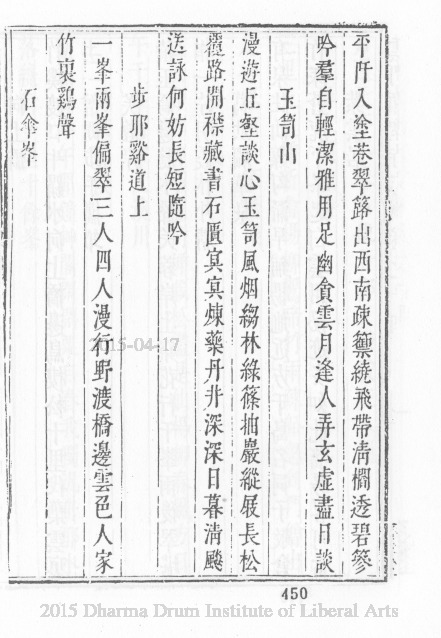 平阡入塗巷翠簬出西南疎籞繞飛帶清櫚透碧篸
吟羣自輕潔雅用足幽貪雲月逢人弄玄虛盡日談
玉笥山
漫遊丘壑談心玉笥風烟縐林綠篠抽巖縱屐長松
覆路開襟藏書石匱寘寘煉藥丹井深深日暮清颷
送詠何妨長短隨吟
步耶谿道上
一峯兩峯偏翠三人四人漫行野渡橋邊雲邑人家
竹裏鷄聲
石傘峯
2015-04-17
450
2015 Dharma Drum Institute of Liberal Arts